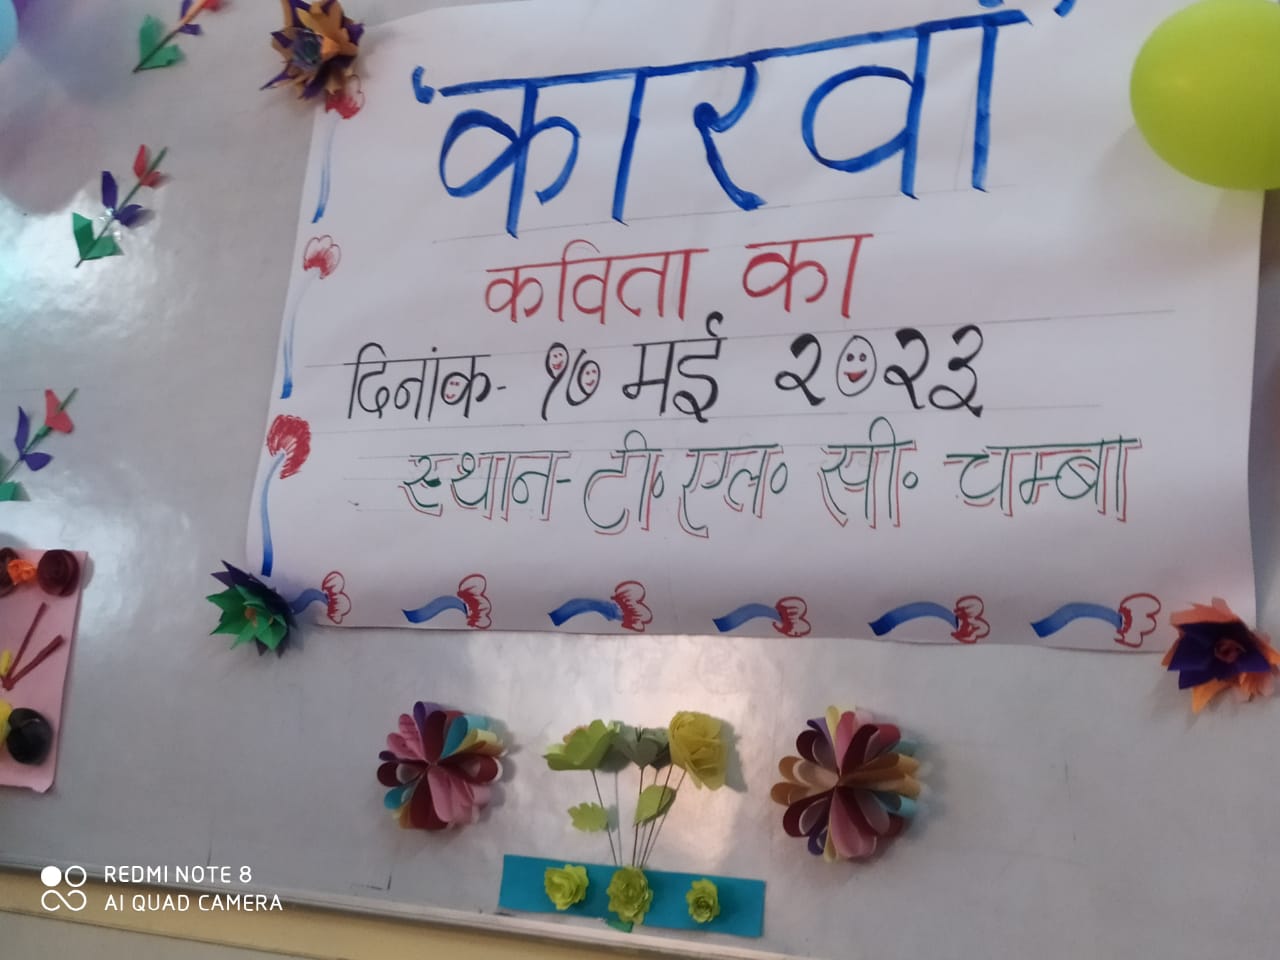 ‘कारवां’
कविता का
दिनांक- १७ मई २०२३
स्थान- टी॰ एल॰ सी॰ चम्बा
REDMI NOTE 8
AI QUAD CAMERA